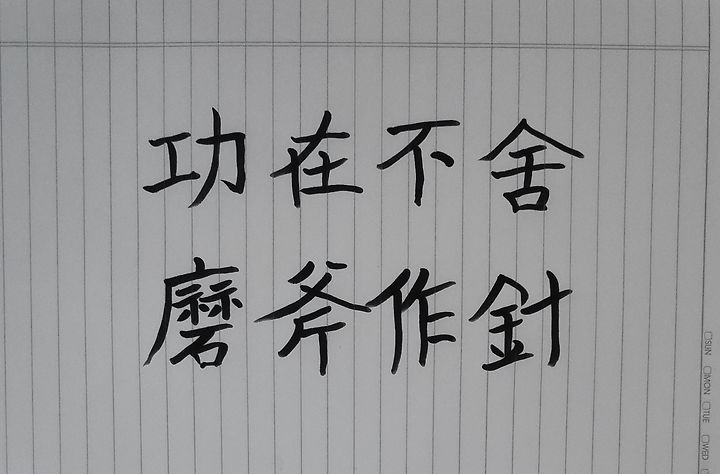 功在不舍
磨斧作針
SUN MON TUE WED